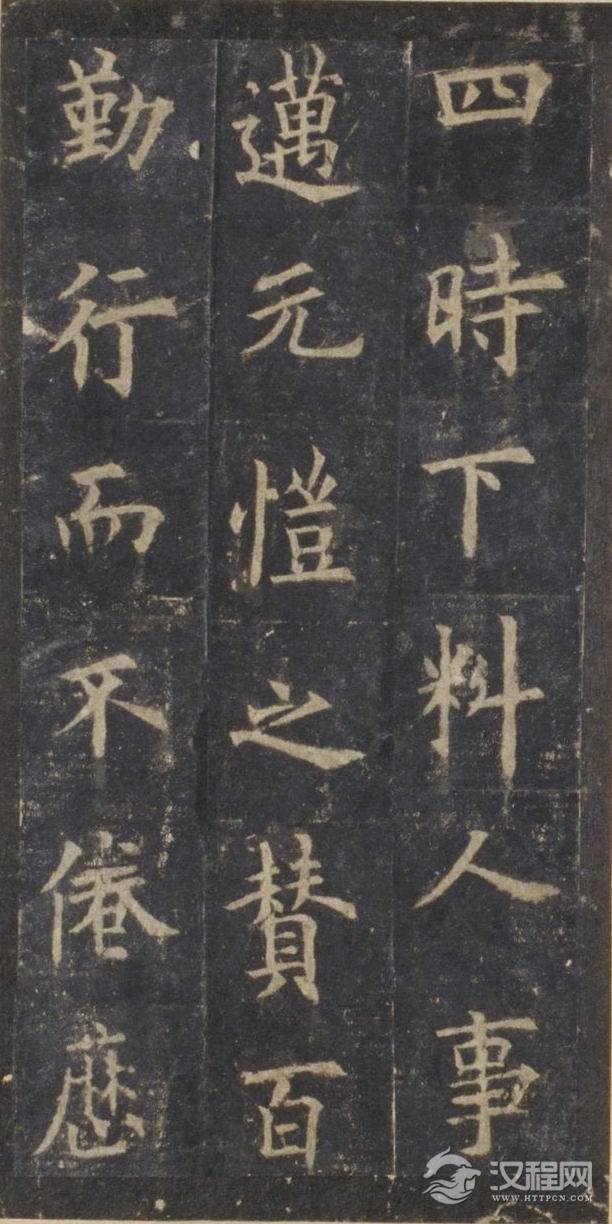 四時下料人事
邁元愷之賛百
勤行而不倦應
汉程网
WWW.HTTPCN.COM